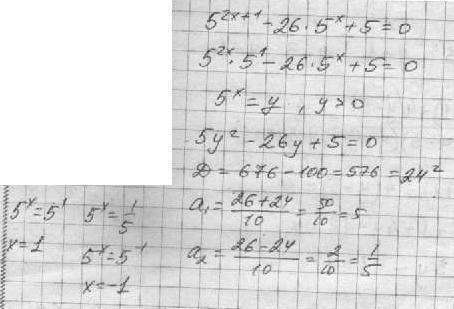 5^{2x+1} - 26 · 5^x + 5 = 0
5^{2x} · 5^1 - 26 · 5^x + 5 = 0
5^x = y , y > 0
5y² - 26y + 5 = 0
D = 676 - 100 = 576 = 24²
a₁ = (26+24)/10 = 50/10 = 5
a₂ = (26-24)/10 = 2/10 = 1/5
5^x = 5^1
x = 1
5^x = 1/5
5^x = 5^{-1}
x = -1